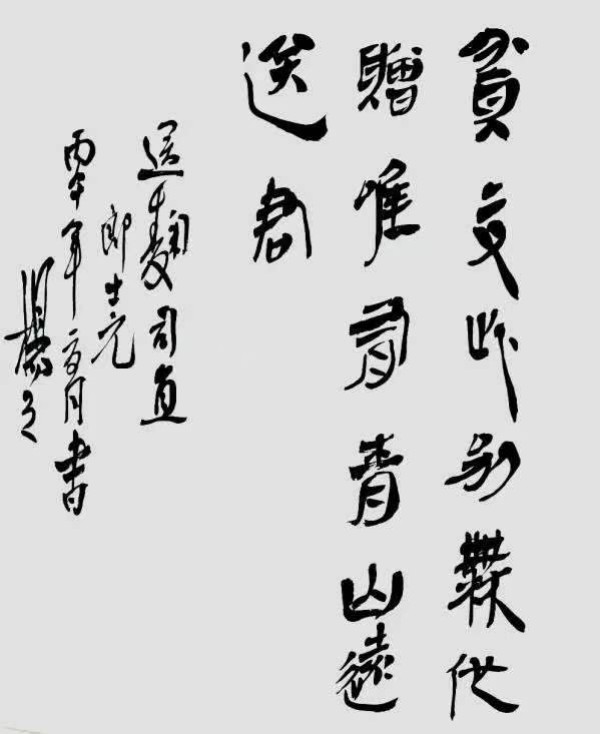 貧交此别無他
贈惟有青山遠
送君
送麴司直
郎士元
丙午年月書